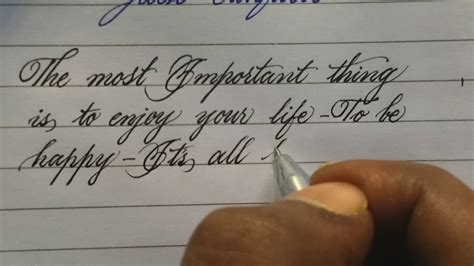 The most Important thing
is, to enjoy your life - To be
happy - It's, all